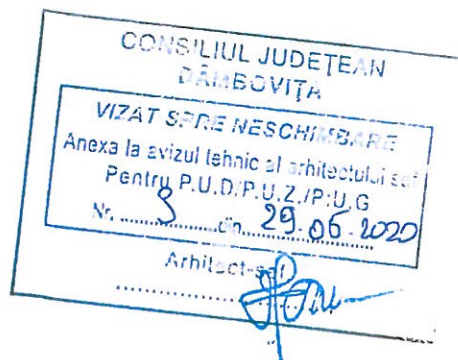 CONSILIUL JUDEȚEAN
DÂMBOVIȚA
VIZAT SPRE NESCHIMBARE
Anexa la avizul tehnic al arhitectului șef
Pentru P.U.D/P.U.Z./P.U.G
Nr. ........ din 29.06.2020
Arhitect-șef